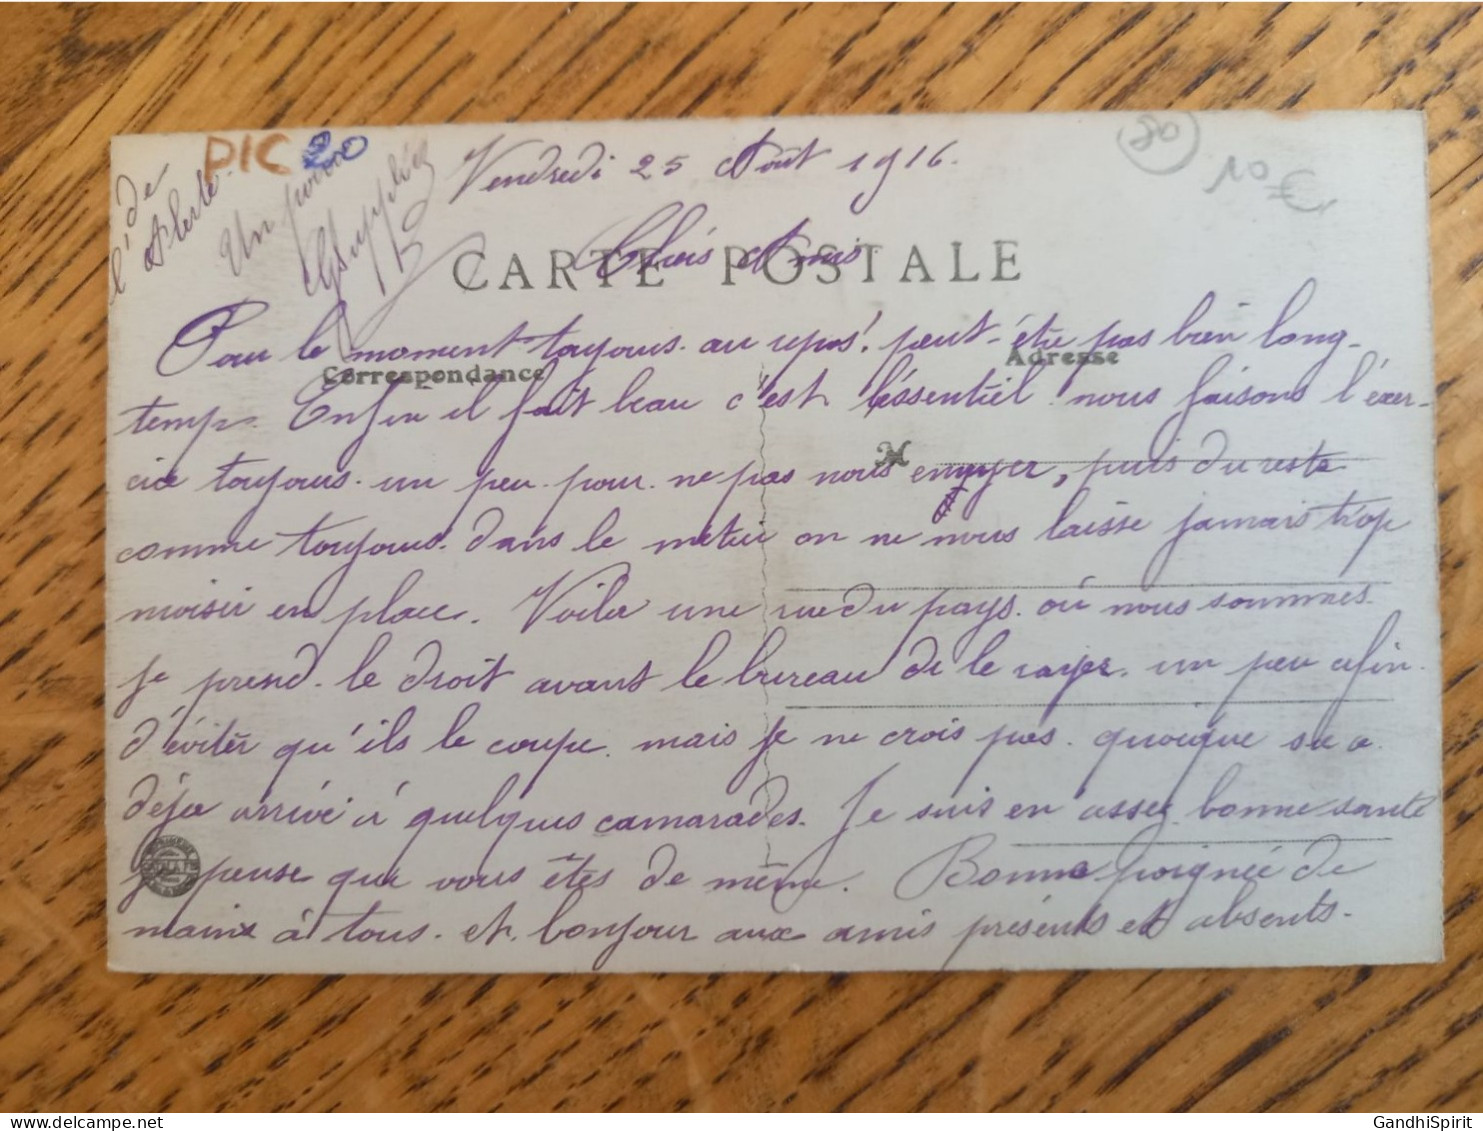 PIC 80
80
10 €
l'
de
Alberte.
Un
Vendredi 25 Août 1916.
CARTE POSTALE
Chers Amis
Pour le moment toujours au repos! peut-être pas bien long-
Correspondance
Adresse
temps. Enfin il fait beau c'est l'éssentiel nous faisons l'exer-
cice toujours un peu pour ne pas nous ennuyer, puis du reste
M
comme toujours dans le métier on ne nous laisse jamais trop
moisir en place. Voila une rue du pays où nous sommes.
Je prend le droit avant le bureau de le rayer un peu afin
d'éviter qu'ils le coupe mais je ne crois pas quoique sa a
déja arrivé à quelques camarades. Je suis en assez bonne santé
je pense que vous êtes de même. Bonne poignée de
mains à tous et bonjour aux amis présents et absents.
GandhiSpirit